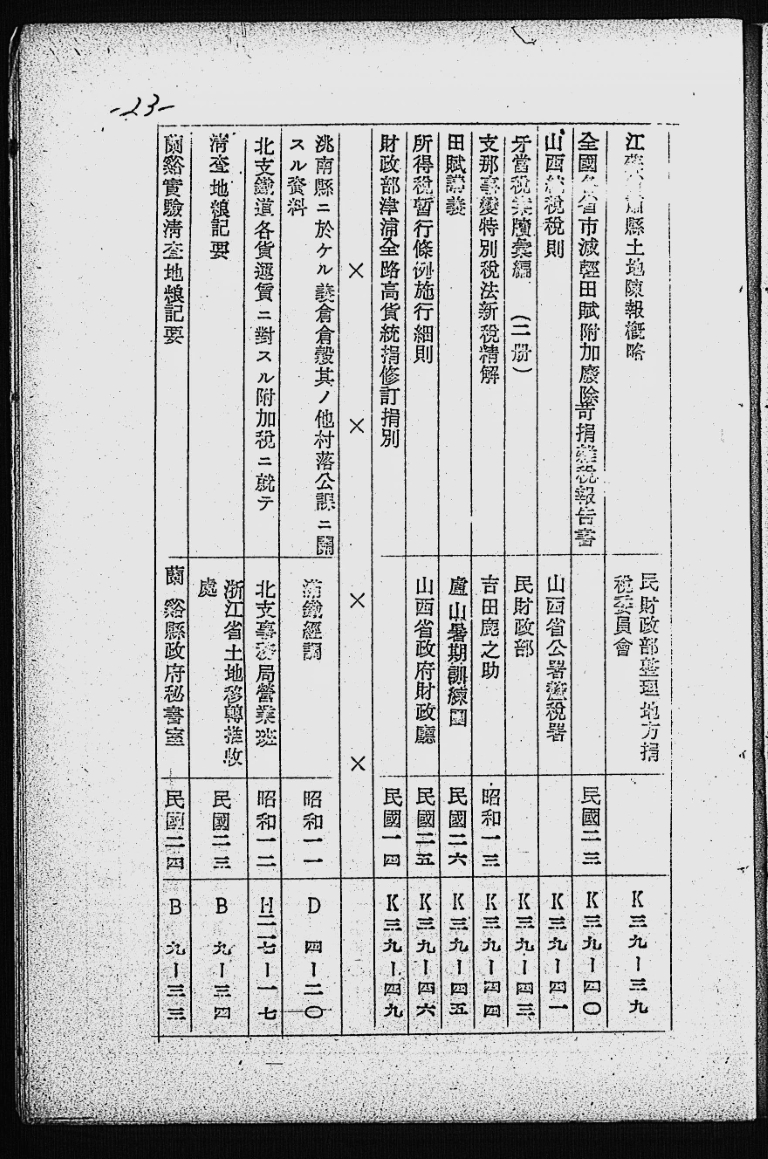 -23-
江蘇省蕭縣土地陳報概略
民財政部整理地方捐
稅委員會
K三九ー三九
全國各省市減輕田賦附加廢除苛捐雜稅報告書
民國二三
K三九ー四〇
山西 稅稅則
山西省公署 稅署
K三九ー四一
牙當稅業牘彙編 (二册)
民財政部
K三九ー四三
支那事變特別稅法新稅精解
吉田鹿之助
昭和一三
K三九ー四四
田賦講義
盧山暑期訓練團
民國二六
K三九ー四五
所得稅暫行條例施行細則
山西省政府財政廳
民國二五
K三九ー四六
財政部津浦全路高貨統捐修訂捐別
民國一四
K三九ー四九
× × × ×
洮南縣ニ於ケル義倉倉穀其ノ他村落公課ニ關
スル資料
滿鐵經調
昭和一一
D 四ー二〇
北支鐵道各貨運賃ニ對スル附加稅ニ就テ
北支事務局營業班
昭和一二
H二二七ー一七
清查地糧記要
浙江省土地移轉推收
處
民國二三
B 九ー三四
蘭谿實驗清查地糧記要
蘭谿縣政府秘書室
民國二四
B 九ー三三